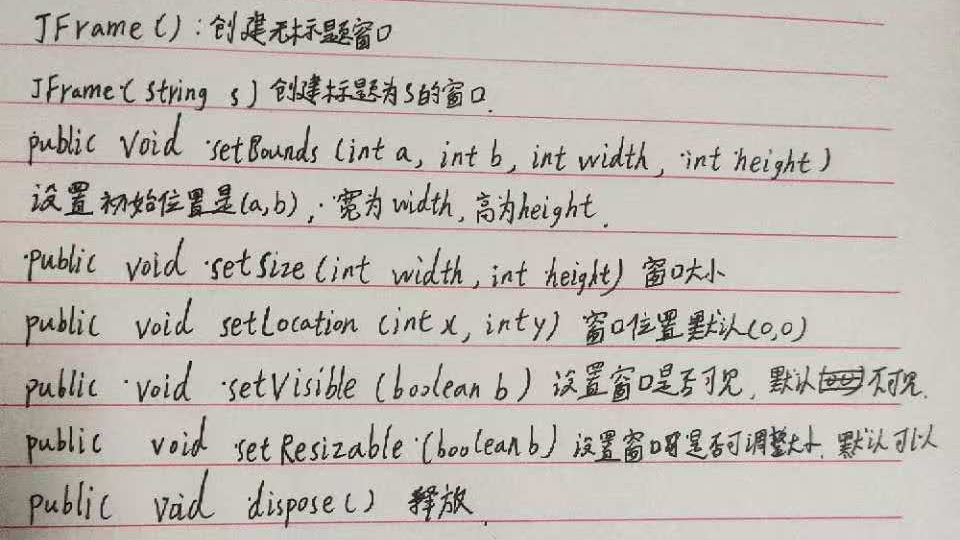 JFrame():创建无标题窗口
JFrame(string s)创建标题为S的窗口.
public void setBounds (int a, int b, int width, int height)
设置初始位置是(a,b),宽为width,高为height.
public void setSize (int width, int height) 窗口大小
public void setLocation (int x, int y) 窗口位置默认(0,0)
public void setVisible (boolean b) 设置窗口是否可见, 默认不可见.
public void setResizable (boolean b) 设置窗口是否可调整大小, 默认可以
public void dispose() 释放.